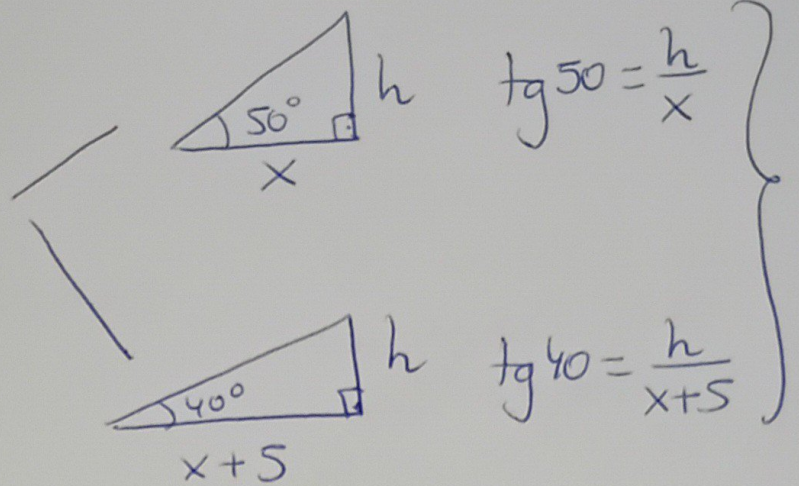 50° h x tg 50 = h/x
40° h x + 5 tg 40 = h/(x+5)